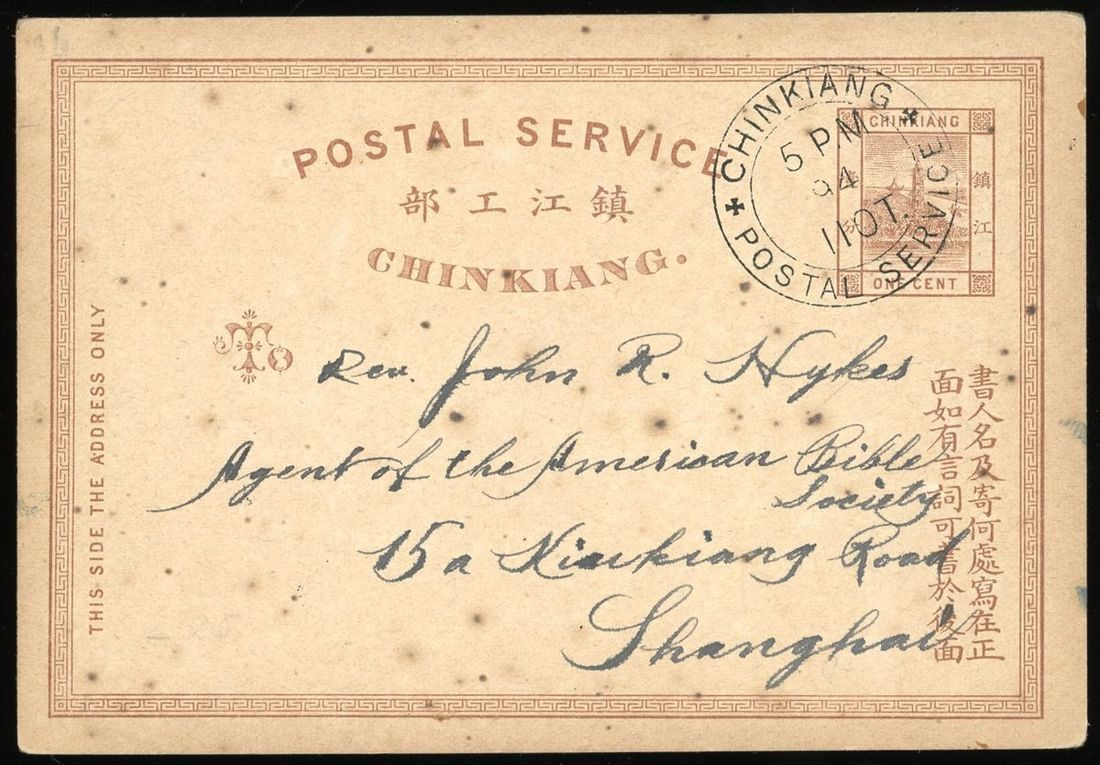 POSTAL SERVICE
鎮江工部
CHINKIANG.
CHINKIANG
POSTAL SERVICE
5 PM
94
11 OT.
CHINKIANG
鎮江
分
ONE CENT
THIS SIDE THE ADDRESS ONLY
To
Rev. John R. Hykes
Agent of the American Bible
Society
15a Kiukiang Road
Shanghai
書人名及寄何處寫在正
面如有言詞可書於後面